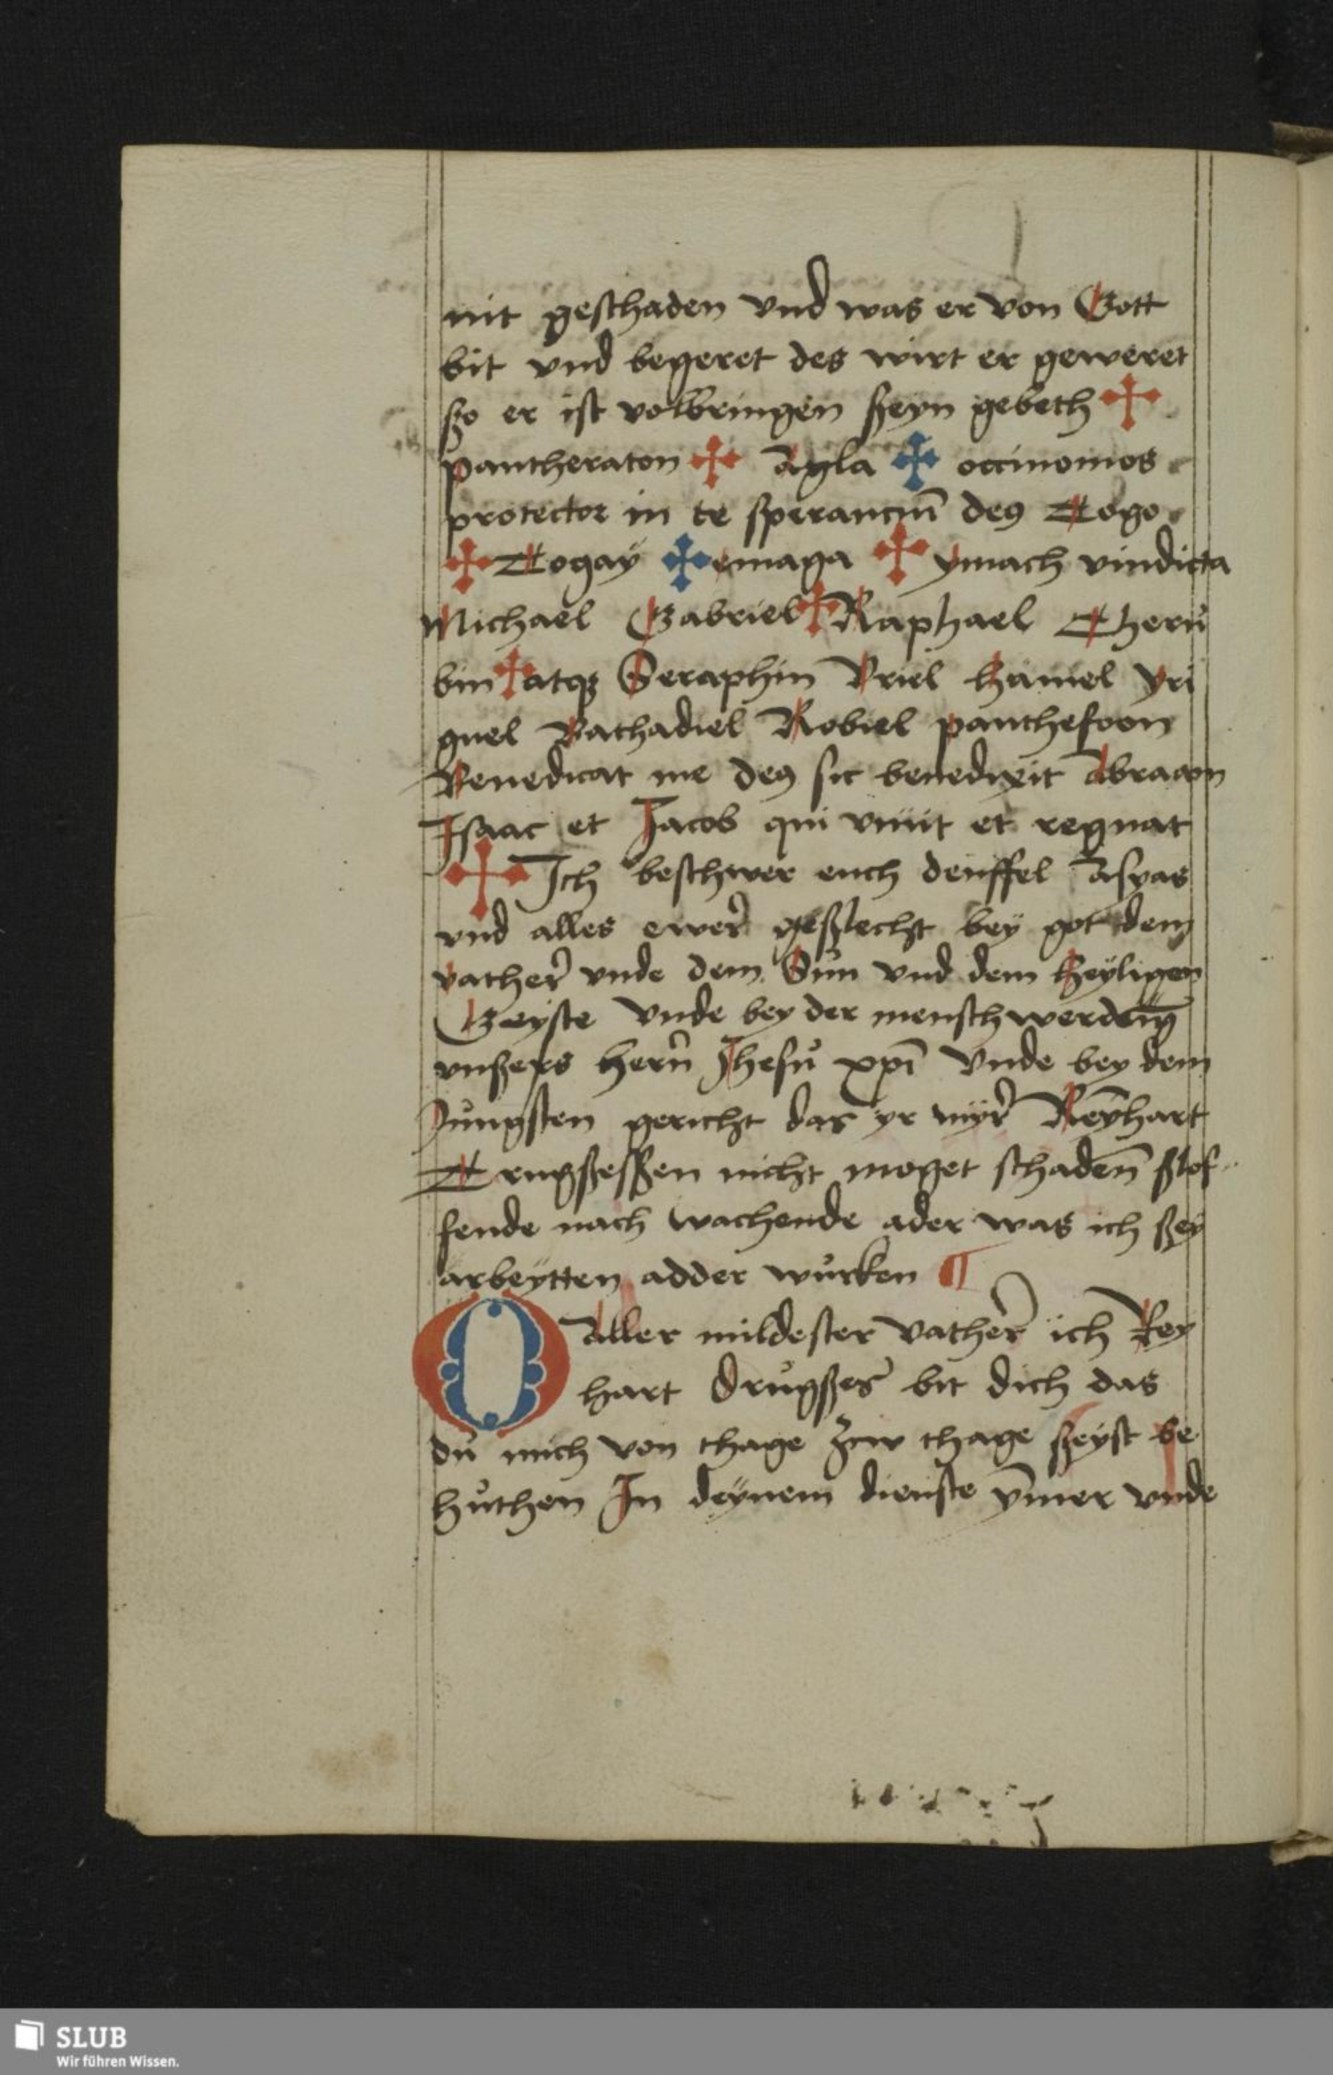 nit geschaden vnd was er von Gott
bit vnd begeret des wirt er geweret
szo er ist volbringen szeyn gebeth ✠
pantheraton ✠ Agla ✠ occinomos
protector in te sperancium̄ deꝯ Togo
✠ Togay ✠ emaga ✠ ymach vindicta
Michael Gabriel ✠ Raphael Cheru
bin ✠ atqꝫ Seraphin Vriel hamel Yri
guel Bathadiel Robiel panthefoon
Benedicat me deꝯ sic benedixit Abraam
Isaac et Jacob qui viuit et regnat
✠ Ich beschwer euch deuffel Asyas
vnd alles ewer geszlecht bey got dem
vather vnde dem Sun vnd dem heyligen
Geyste vnde bey der menschwerdeūg
vnszers hern̄ Jhesu xpī Vnde bey dem
Jungsten gericht das yr myr Reȳhart
Trugszeszen nicht moget schaden̄ szlof
fende nach wachende ader was ich szey
arbeytten adder wurken ¶
O Aller mildester vather ich Rey
hart Drugszes bit dich das
du mich von thage zcw thage szeyst be
huthen In deynem dienste ȳmer vnde
SLUB
Wir führen Wissen.